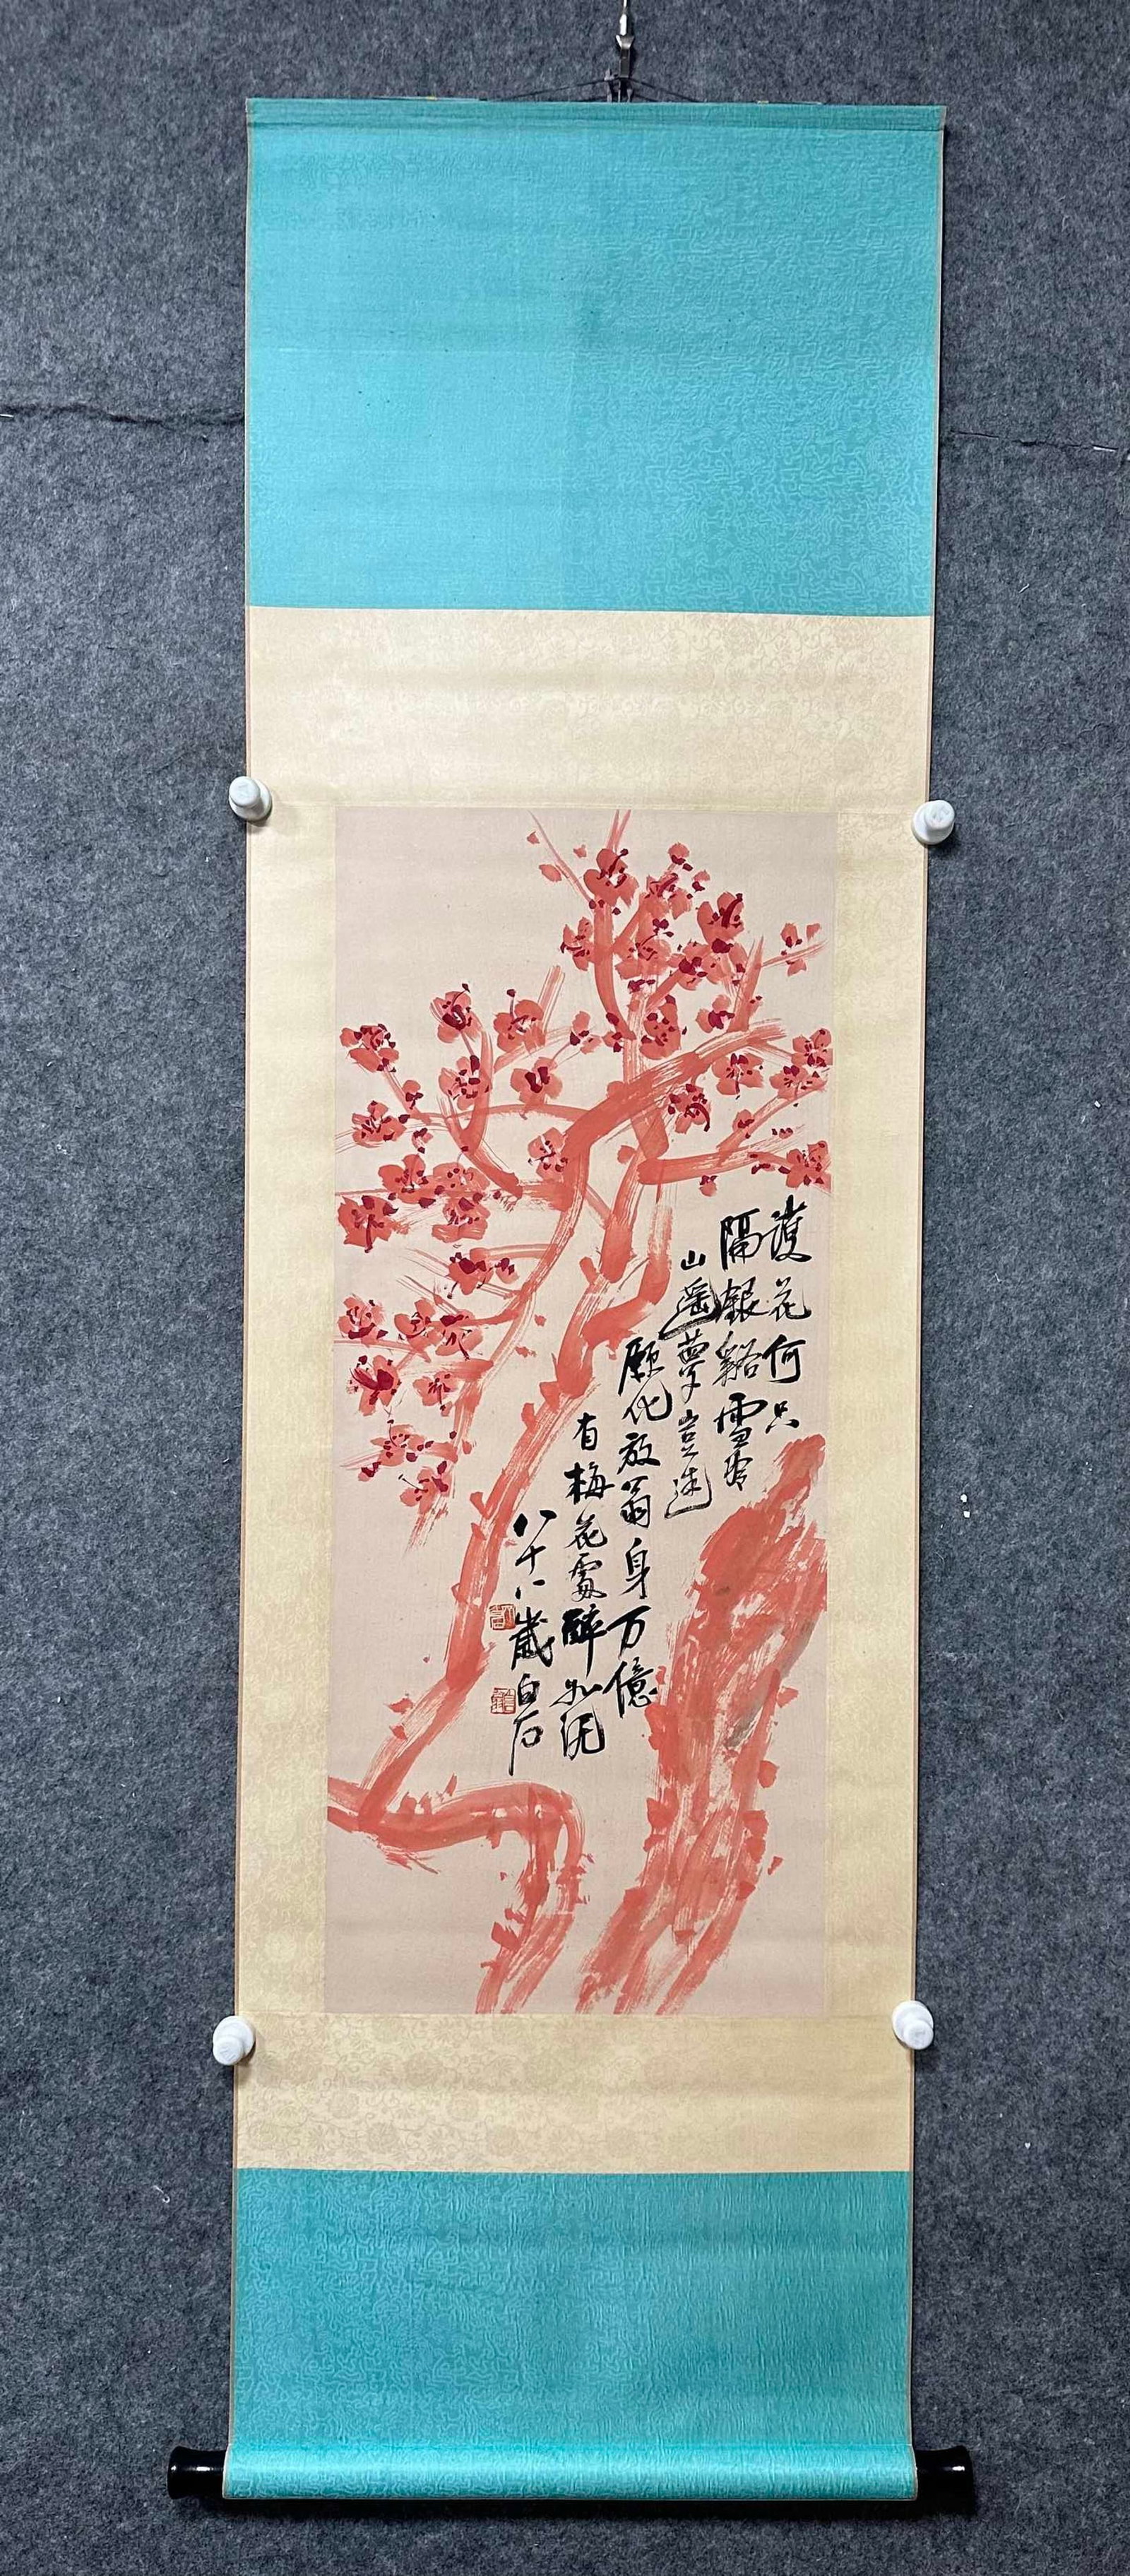 護花何只
隔銀谿雪冷
山遥夢豈迷
願化放翁身万億
有梅花處醉如泥
八十八歲白石